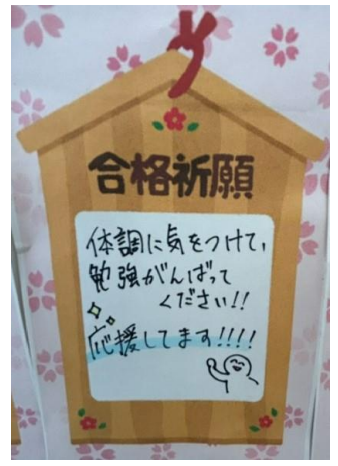 合格祈願
体調に気をつけて、
勉強がんばって
ください!!
応援してます!!!!